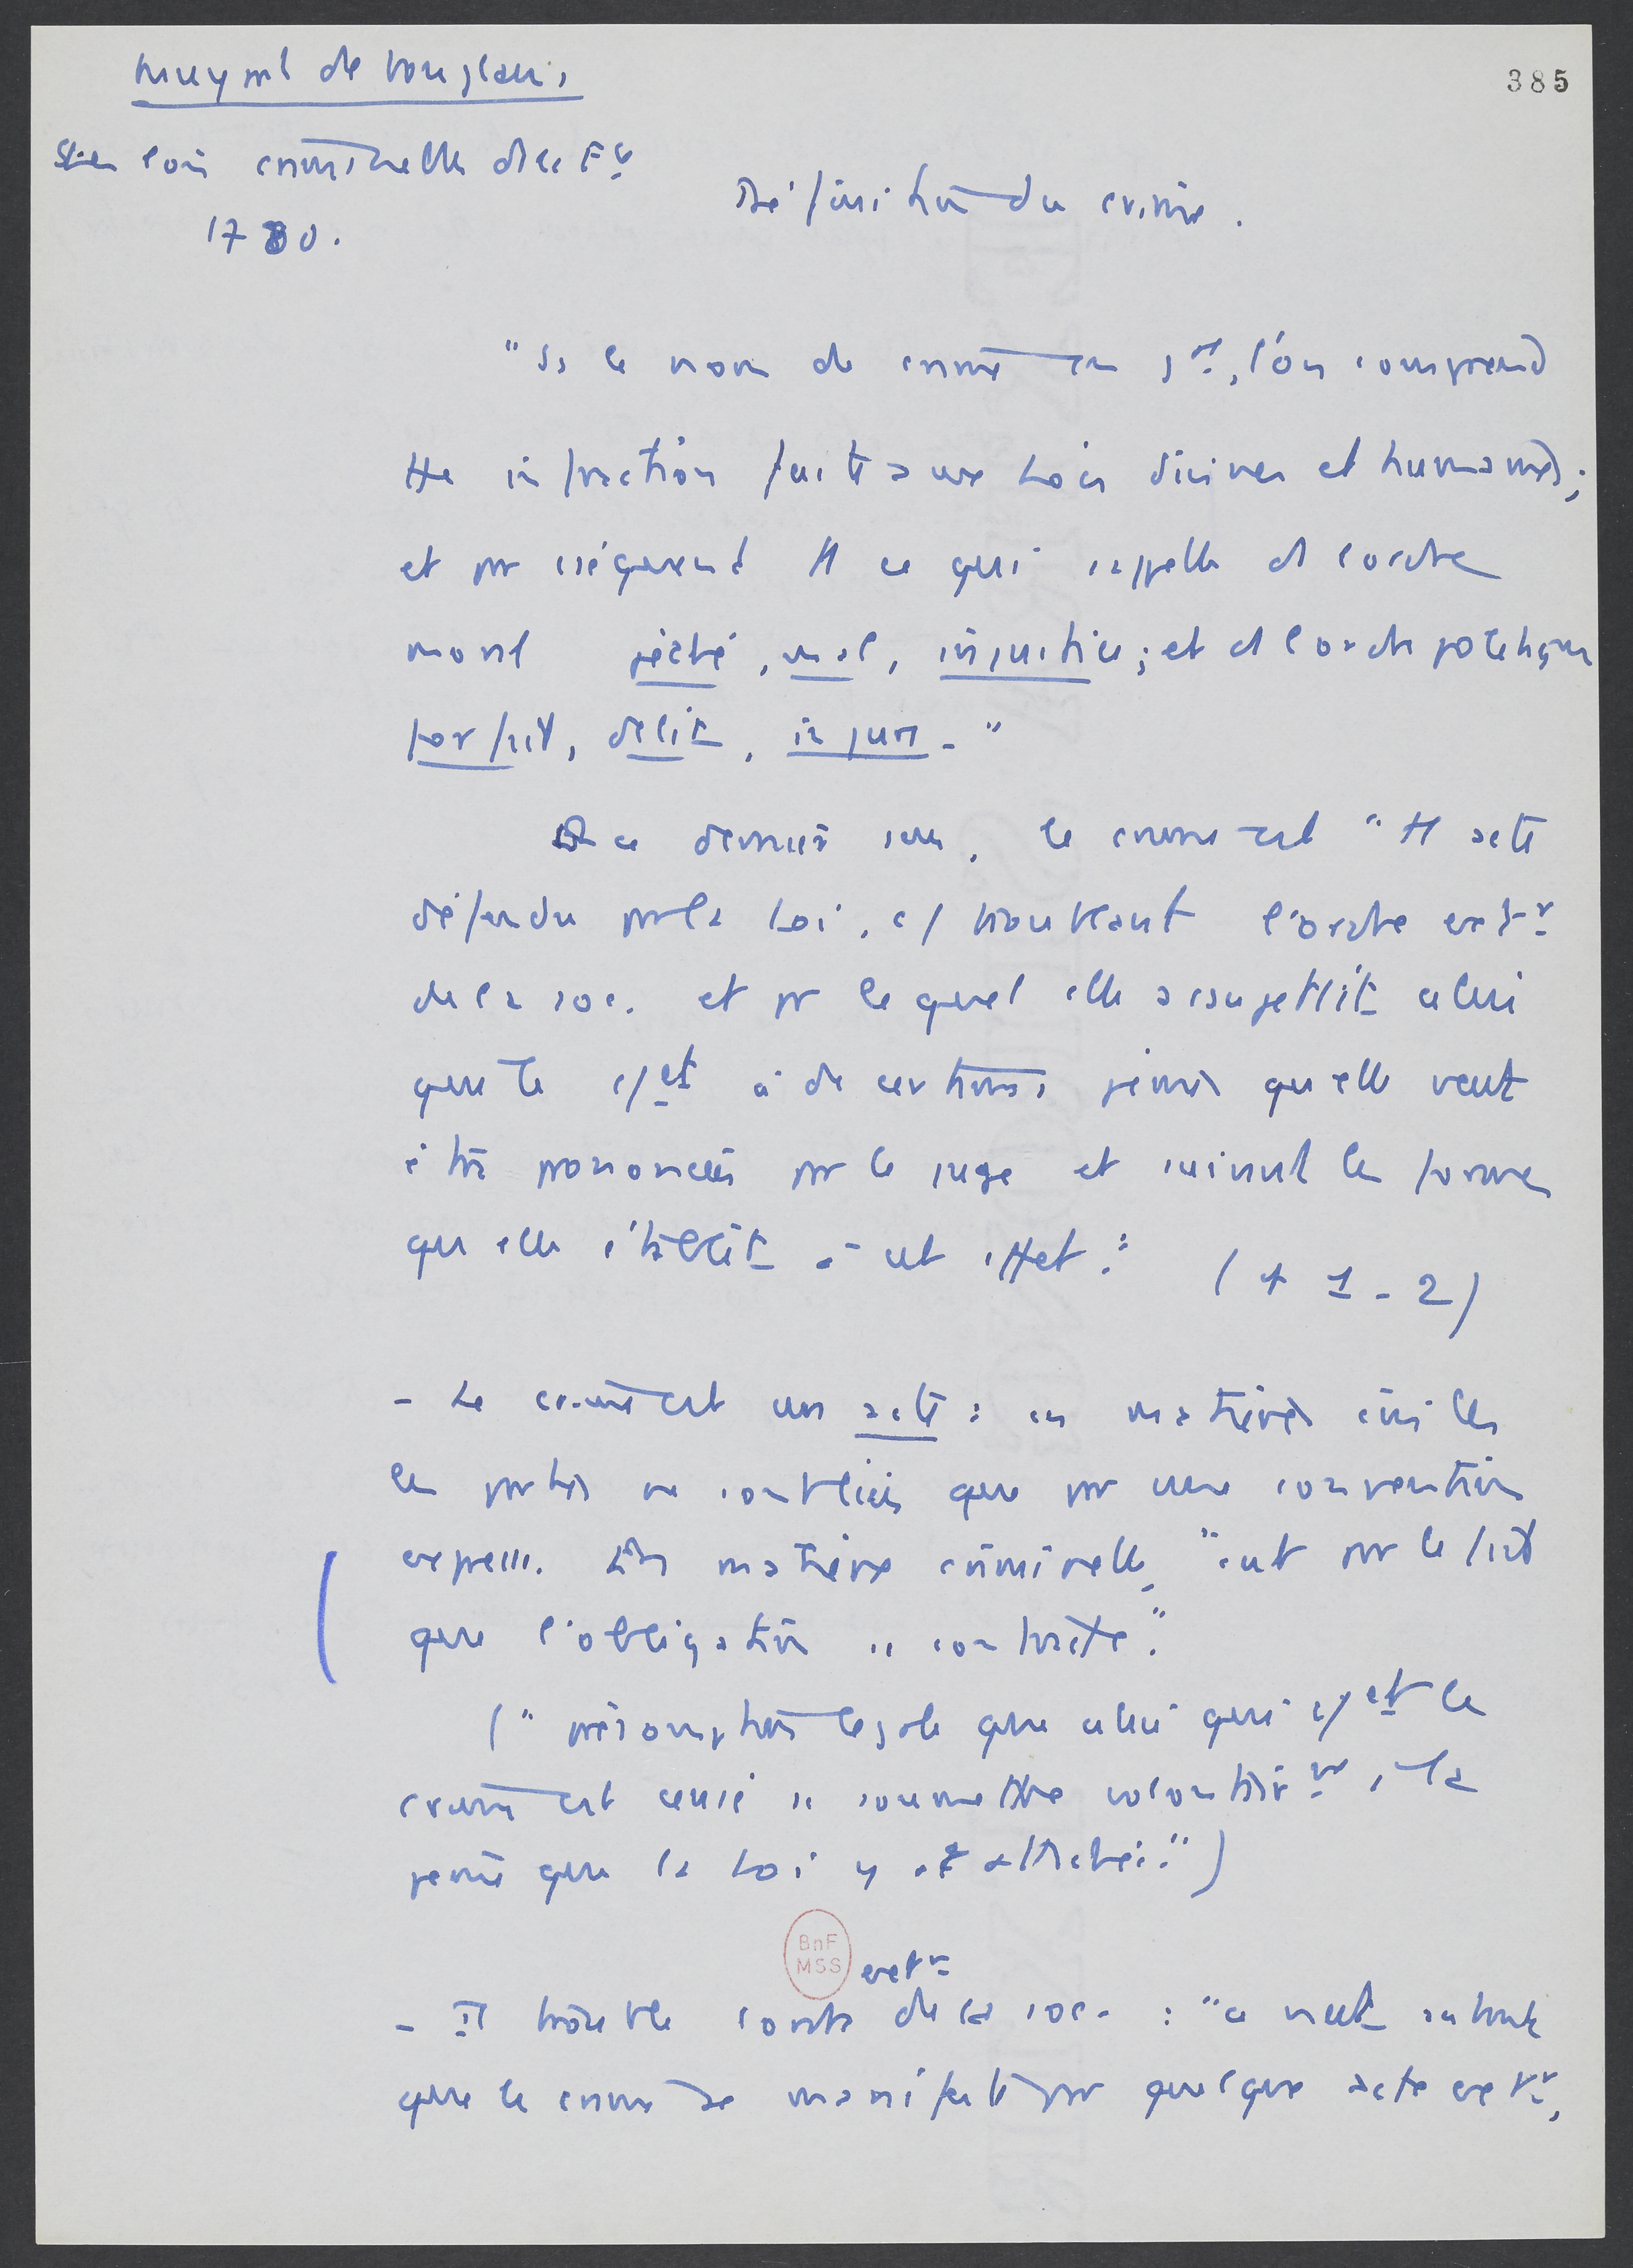 Muyart de Vouglans
385
Les lois criminelles de la Fr
1780.
Définition du crime.
"Ss le nom de crime en gal, l'on comprend
tte infraction faite aux Lois divines et humaines;
et par conséquent tt ce qui s'appelle ds l'ordre
moral péché, mal, injustice; et ds l'ordre politique
forfait, délit, injure."
Ds ce dernier sens, le crime est "tt acte
défendu par la Loi, c/ troublant l'ordre extr
de la soc. et par lequel elle assujettit celui
que le c/et à de certaines peines qu'elle veut
être prononcées par le juge et suivant les formes
qu'elle établit à cet effet." (p 1-2)
- Le crime est un acte : en matières civiles
les parties ne sont liées que par une convention
express. En matière criminelle, "c'est par le fait
que l'obligation se contracte."
("présomption légale que celui qui c/et le
crime est censé se soumettre volontairmt à la
peine que la Loi y a attachée.")
BnF
MSS
extr
- Il trouble l'ordre de la soc. : "ce n'est autant
que le crime se manifeste par quelque acte extr,